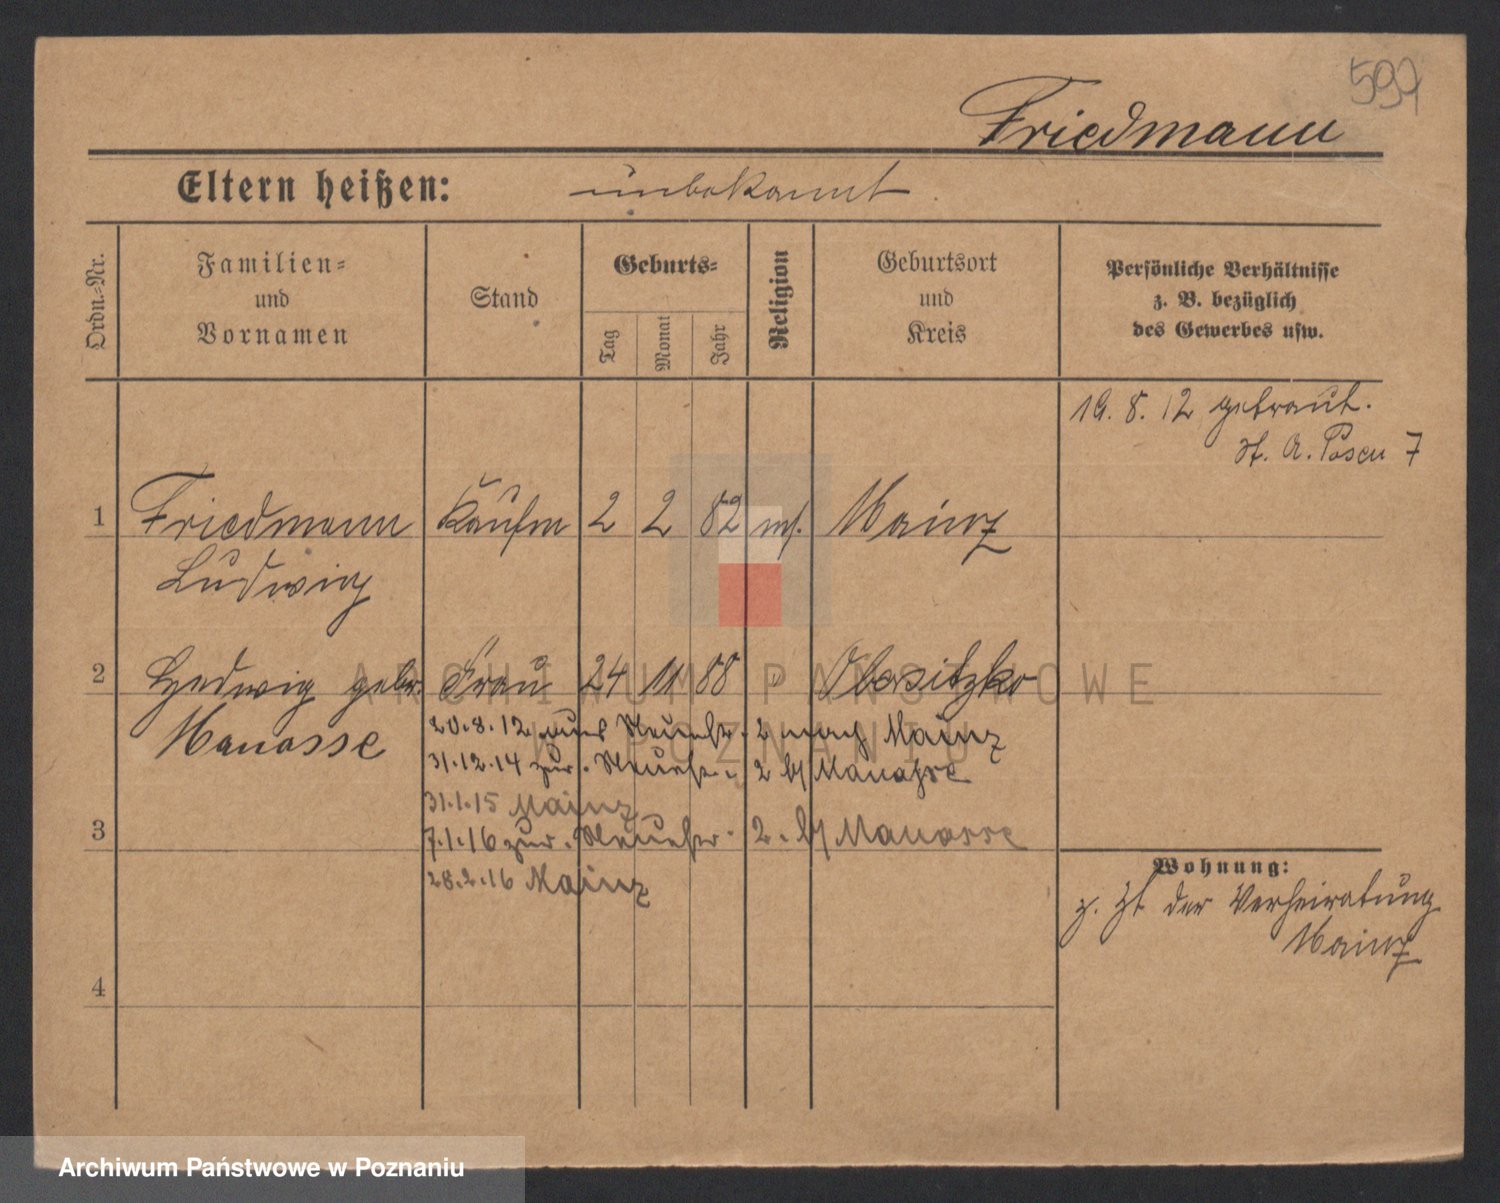 597
Friedmann
Eltern heißen: unbekannt
Ordn.-Nr.
Familien-
und
Vornamen
Stand
Geburts-
Tag
Monat
Jahr
Religion
Geburtsort
und
Kreis
Persönliche Verhältnisse
z. B. bezüglich
des Gewerbes usw.
19. 8. 12 getraut.
St. A. Posen 7
1 Friedmann Kaufm 2 2 82 ms. Mainz
Ludwig
2 Hedwig geb. Frau 24 11 88 " Obersitzko
Manasse
20.8.12 2 nach Mainz
31.12.14 zur. 2 b/ Manasse
31.1.15 Mainz
7.1.16 zur. 2. b/ Manasse
28.2.16 Mainz
3
4
Wohnung:
z. Zt der Verheiratung
Mainz
ARCHIWUM PAŃSTWOWE
W POZNANIU
Archiwum Państwowe w Poznaniu